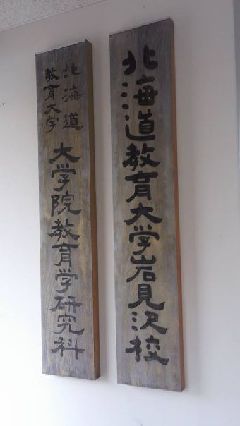 北海道教育大学岩見沢校
北海道
教育大学
大学院教育学研究科